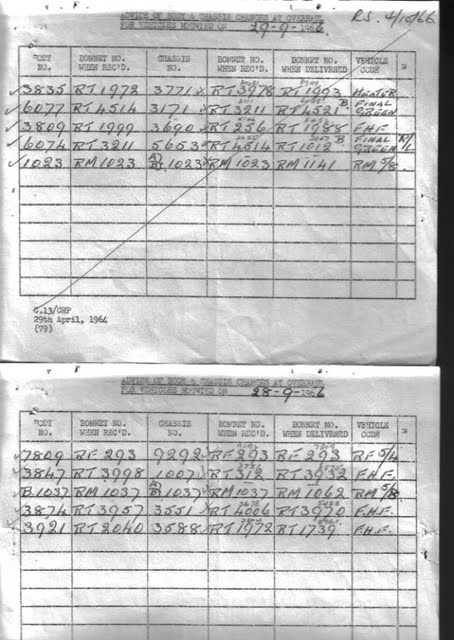 ADVICE OF BODY & CHASSIS CHANGES AT OVERHAUL
FOR VEHICLES MOUNTED ON 29-9-1966.
RS. 4/10/66
BODY NO. BONNET NO. WHEN REC'D. CHASSIS NO. BONNET NO. WHEN REC'D. BONNET NO. WHEN DELIVERED VEHICLE CODE
✓3835 RT1972 3771 x RT3978 RT1993 HEATER
✓6077 RT4514 3171 x RT3211 RT4521 B FINAL GREEN
✓3809 RT1999 3690 x RT256 RT1988 F.H.F.
✓6074 RT3211 5653 x RT4514 RT1012 B FINAL GREEN R/L
✓1023 RM1023 1023 x RM1023 RM1141 RM 5/8
C.13/CHP
29th April, 1964
(79)
ADVICE OF BODY & CHASSIS CHANGES AT OVERHAUL
FOR VEHICLES MOUNTED ON 28-9-1966
BODY NO. BONNET NO. WHEN REC'D. CHASSIS NO. BONNET NO. WHEN REC'D. BONNET NO. WHEN DELIVERED VEHICLE CODE
✓7809 RF293 9292 x RF293 RF293 RF5/4
✓3847 RT3998 1007 x RT312 RT3932 F.H.F.
✓B.1037 RM1037 1037 x RM1037 RM1062 RM 5/8
✓3874 RT3957 3551 x RT4006 RT3970 F.H.F.
✓3921 RT2040 3588 x RT1972 RT1739 F.H.F.